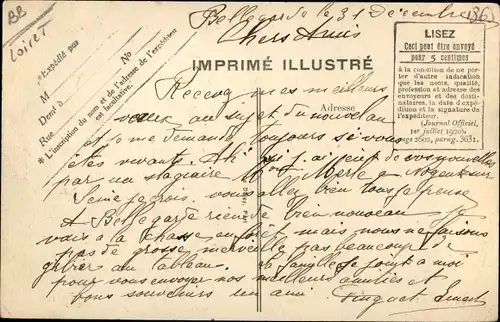 BB
Loiret
Bellegarde le 31 Décembre
1936
Chers Amis
*Expédié par
M
Demt à
Rue
No
* L'inscription du nom et de l'adresse de l'expéditeur
est facultative.
IMPRIMÉ ILLUSTRÉ
Adresse
LISEZ
Ceci peut être envoyé
pour 5 centimes
à la condition de ne por-
ter d'autre indication
que les noms, qualité,
profession et adresse des
envoyeurs et des desti-
nataires, la date d'expé-
dition et la signature de
l'expéditeur.
(Journal Officiel,
1er juillet 1920,
page 2602, parag. 3631.
Recevez mes meilleurs
vœux au sujet du nouveau
et je me demande toujours si vous
êtes vivants. Ah! si j'ai eut de vos nouvelles
par un stagiaire Mt Merle à Nogent sur
Seine je crois. vous allez bien tous je pense
A Bellegarde rien de bien nouveau. Je
vais à la chasse mais nous ne faisons
pas de grosse merveille pas beaucoup de
gibier au tableau. la famille se joint à moi
pour vous envoyer nos meilleures amitiés et
bons souvenirs